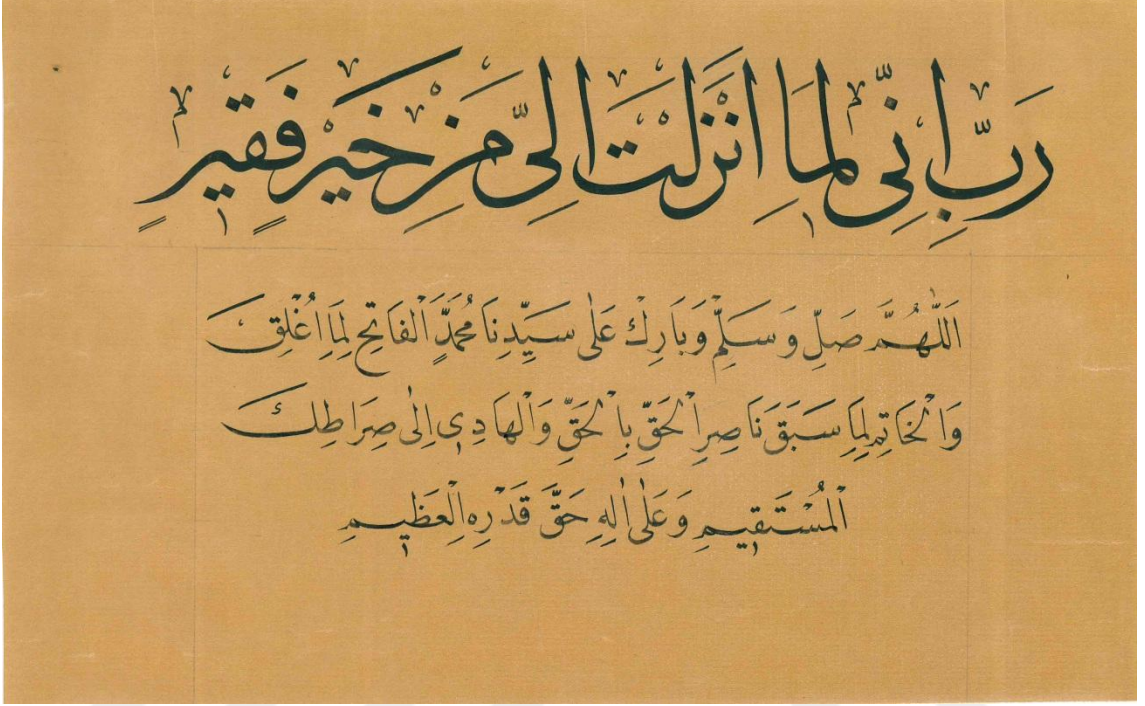 رَبِّ اِنّ۪ي لِمَا اَنْزَلْتَ اِلَيَّ مِنْ خَيْرٍ فَق۪يرٍ
اَللّٰهُمَّ صَلِّ وَسَلِّمْ وَبَارِكْ عَلٰى سَيِّدِنَا مُحَمَّدٍ الْفَاتِحِ لِمَا اُغْلِقَ
وَالْخَاتِمِ لِمَا سَبَقَ نَاصِرِ الْحَقِّ بِالْحَقِّ وَالْهَادِي اِلٰى صِرَاطِكَ
الْمُسْتَقِيمِ وَعَلٰى اٰلِهِ حَقَّ قَدْرِهِ الْعَظِيمِ